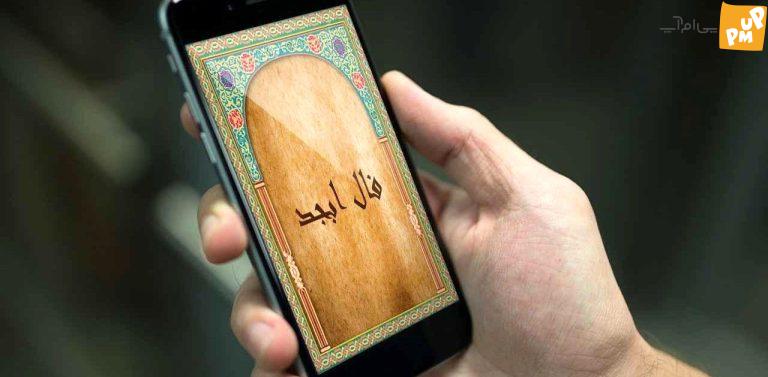 پی‌ام‌آپ
PM
UP
فال ابجد